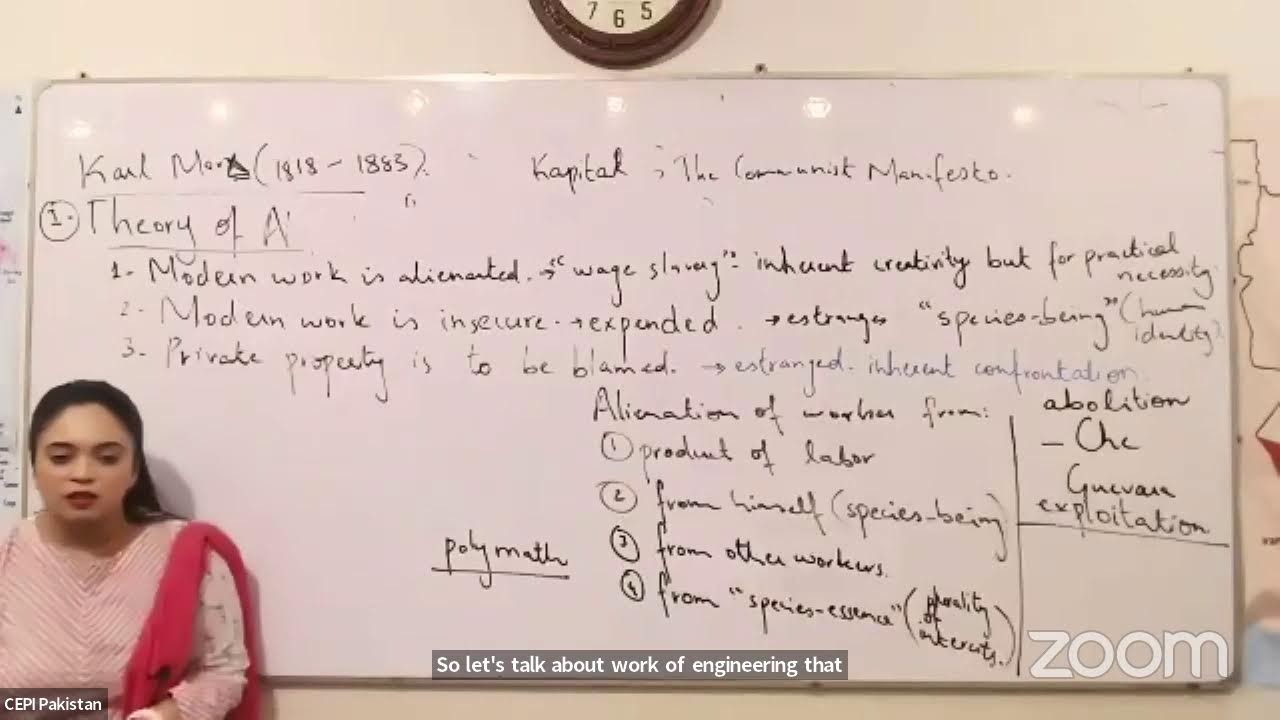 7 6 5
Karl Marx (1818 - 1883). Kapital ; The Communist Manifesto.
1. Theory of A'
1- Modern work is alienated. → "wage slavery" - inherent creativity but for practical necessity.
2- Modern work is insecure. → expended. → estranges "species-being" (human identity).
3- Private property is to be blamed. → estranged. inherent confrontation.
Alienation of worker from:
① product of labor
② from himself (species-being)
③ from other workers.
④ from "species-essence" (plurality of interests.)
abolition
- Che
Guevara
exploitation
polymath
So let's talk about work of engineering that
CEPI Pakistan
zoom